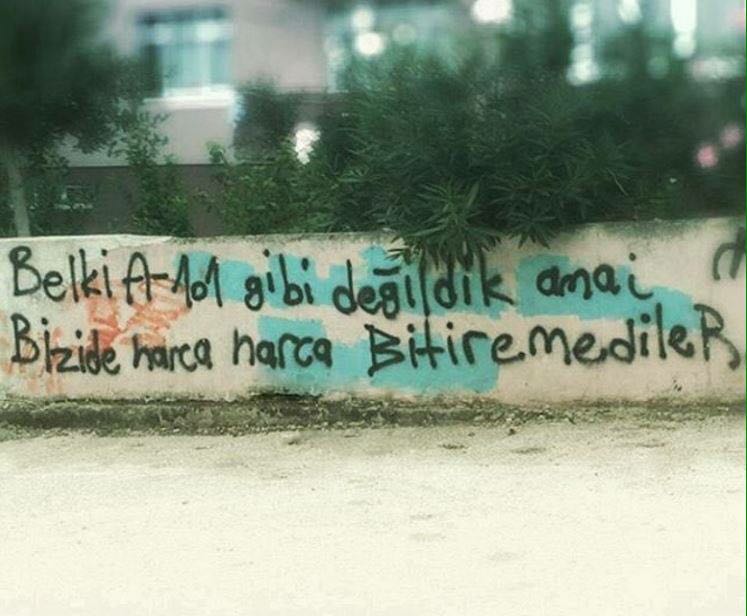 Belki A-101 gibi değildik amai
Bizide harca harca BitiremedileR